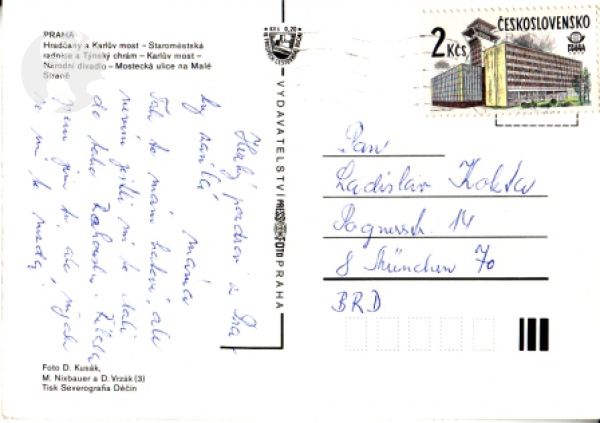 PRAHA
Hradčany a Karlův most – Staroměstská
radnice a Týnský chrám – Karlův most –
Národní divadlo – Mostecká ulice na Malé
Straně
Kčs 0,20
VYDAVATELSTVÍ PRESSFOTO PRAHA
ČESKOSLOVENSKO
2 Kčs
Hezký pozdrav z Pra
hy zasílá
máma
Tak to mám hotové, ale
nevím jestli mi to dali
do toho
jsem ale
mi to
Pan
Ladislav
14
8 München 70
BRD
Foto D. Kusák,
M. Nixbauer a D. Vrzák (3)
Tisk Severografia Děčín